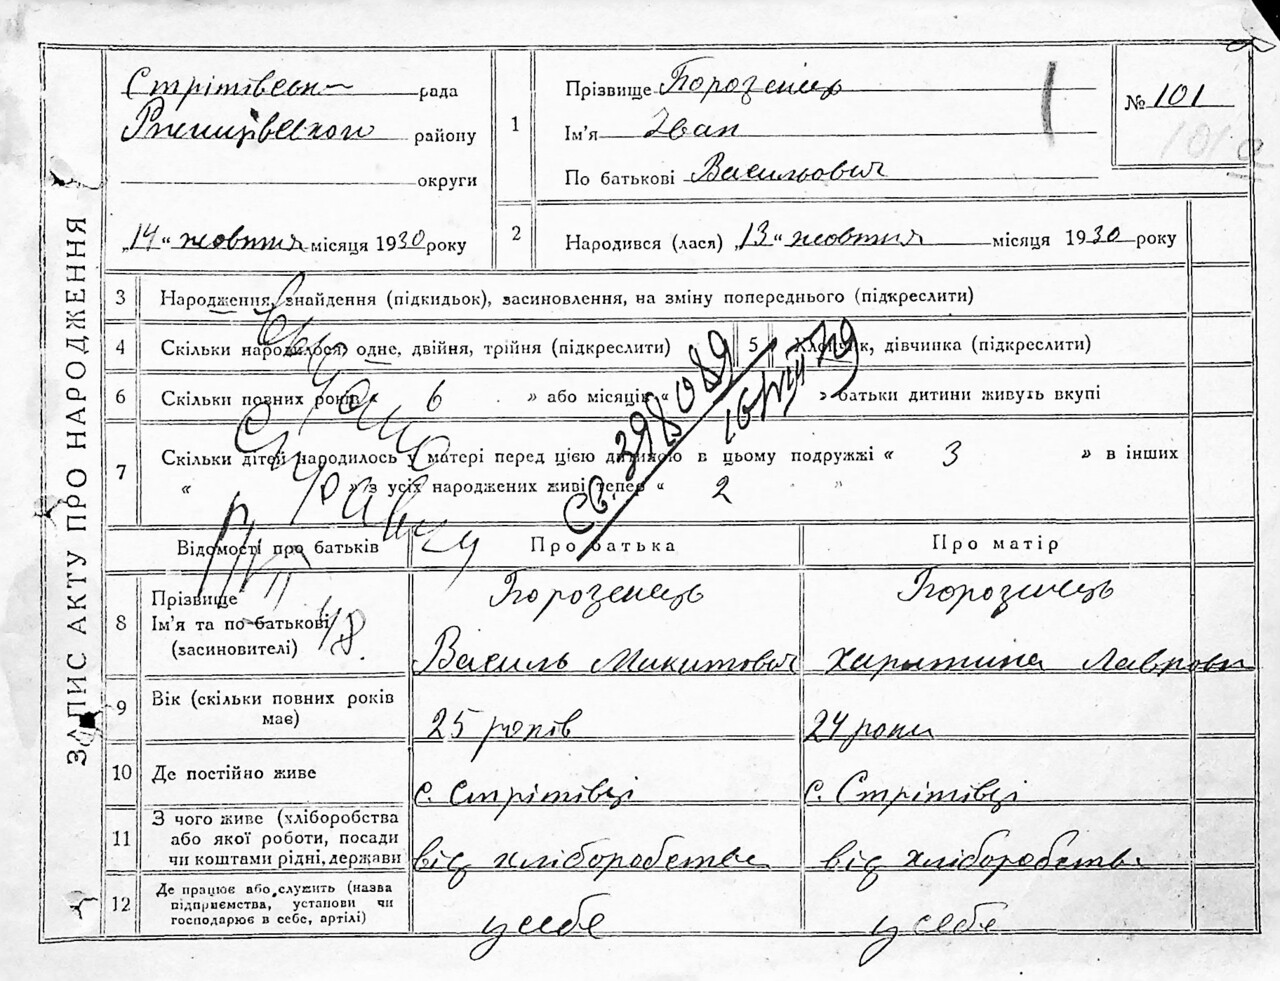 ЗАПИС АКТУ ПРО НАРОДЖЕННЯ
Стрітівськ рада
Ржищівського району
округи
„14“ жовтня місяця 1930 року
1
Прізвище Порозенець
Ім'я Іван
По батькові Васильович
№ 101
101а
2
Народився (лася) „13“ жовтня місяця 1930 року
3 Народження, знайдення (підкидьок), засиновлення, на зміну попереднього (підкреслити)
4 Скільки народилося: одне, двійня, трійня (підкреслити)
5 Хлопчик, дівчинка (підкреслити)
6 Скільки повних років « 6 » або місяців « » батьки дитини живуть вкупі
7 Скільки дітей народилось у матері перед цією дитиною в цьому подружжі « 3 » в інших
« » з усіх народжених живі тепер « 2 »
св. 398089
Відомості про батьків
Про батька
Про матір
8 Прізвище
Ім'я та по-батькові
(засиновителі)
Порозенець
Василь Микитович
Порозенець
Харитина Лавровн
9 Вік (скільки повних років має)
25 років
24 роки
10 Де постійно живе
с. Стрітівці
с. Стрітівці
11 З чого живе (хліборобства
або якої роботи, посади
чи коштами рідні, держави
від хліборобства
від хліборобства
12 Де працює або служить (назва
підприємства, установи чи
господарює в себе, артілі)
у себе
у себе